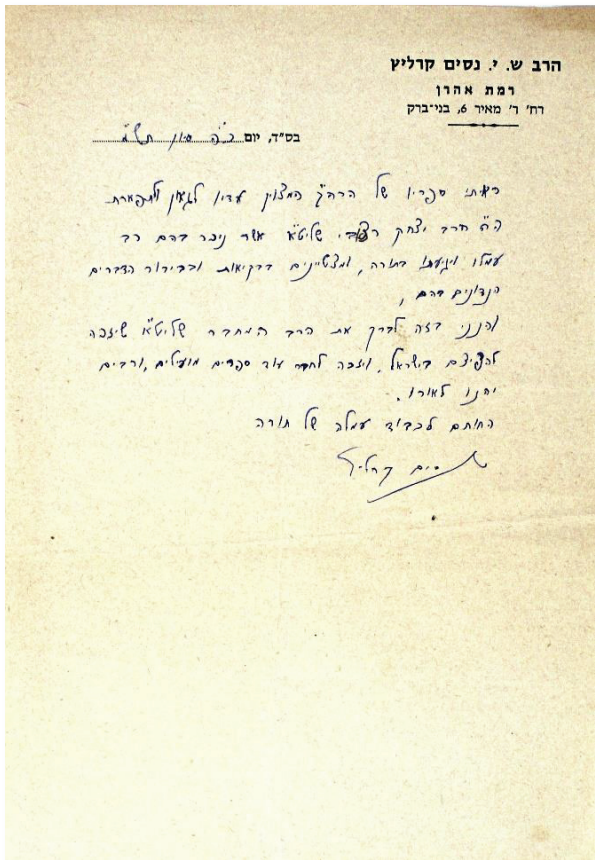 הרב ש. י. נסים קרליץ
רמת אהרן
רח' ר' מאיר 6, בני־ברק
בס"ד, יום כ"ה סיון
ראיתי ספריו של הרה"ג המצוין עדיו לגאון ולתפארת
הרב יצחק שליט"א אשר ניכר בהם רב
עמלו ויגיעתו בתורה, ומצטיינים בבקיאות ובבירור הדברים
הנדונים בהם,
והנני בזה לברך את הרב המחבר שליט"א שיזכה
להפיצם בישראל, ויזכה לחבר עוד ספרים מועילים, ורבים
יהנו לאורו.
החותם לכבוד עמלה של תורה
נסים קרליץ